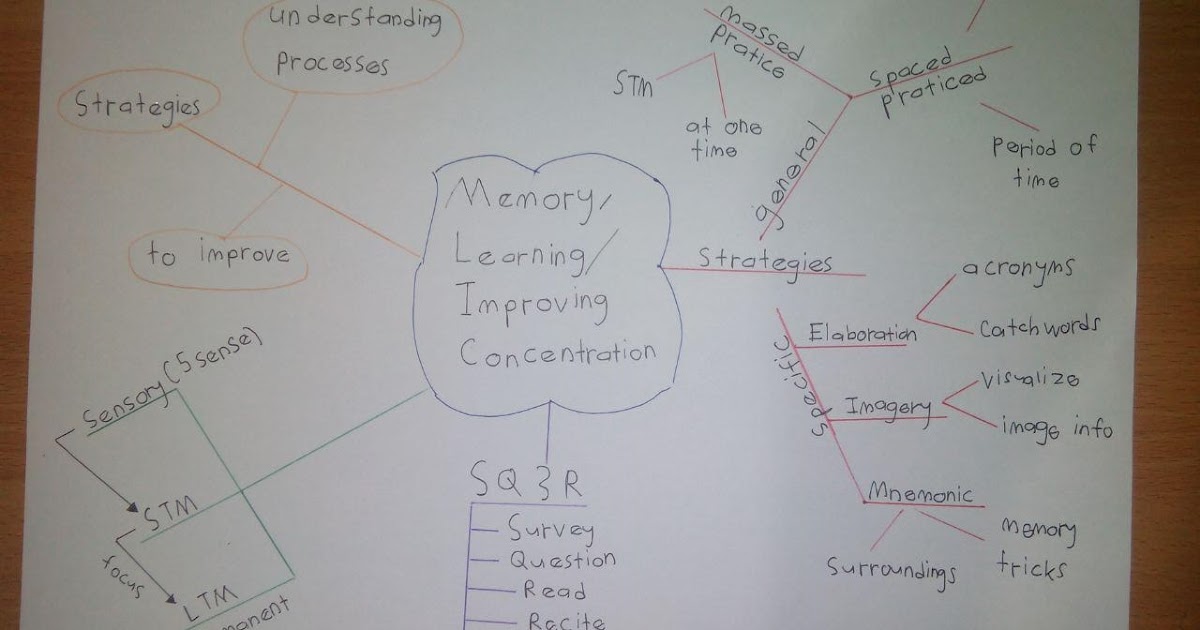 understanding
processes
Strategies
to improve
Memory/
Learning/
Improving
Concentration
massed
pratice
STM
at one
time
spaced
praticed
period of
time
general
Strategies
specific
Elaboration
acronyms
catchwords
Imagery
visualize
image info
Mnemonic
surroundings
memory
tricks
Sensory (5 sense)
STM
focus
LTM
SQ3R
Survey
Question
Read
Racite